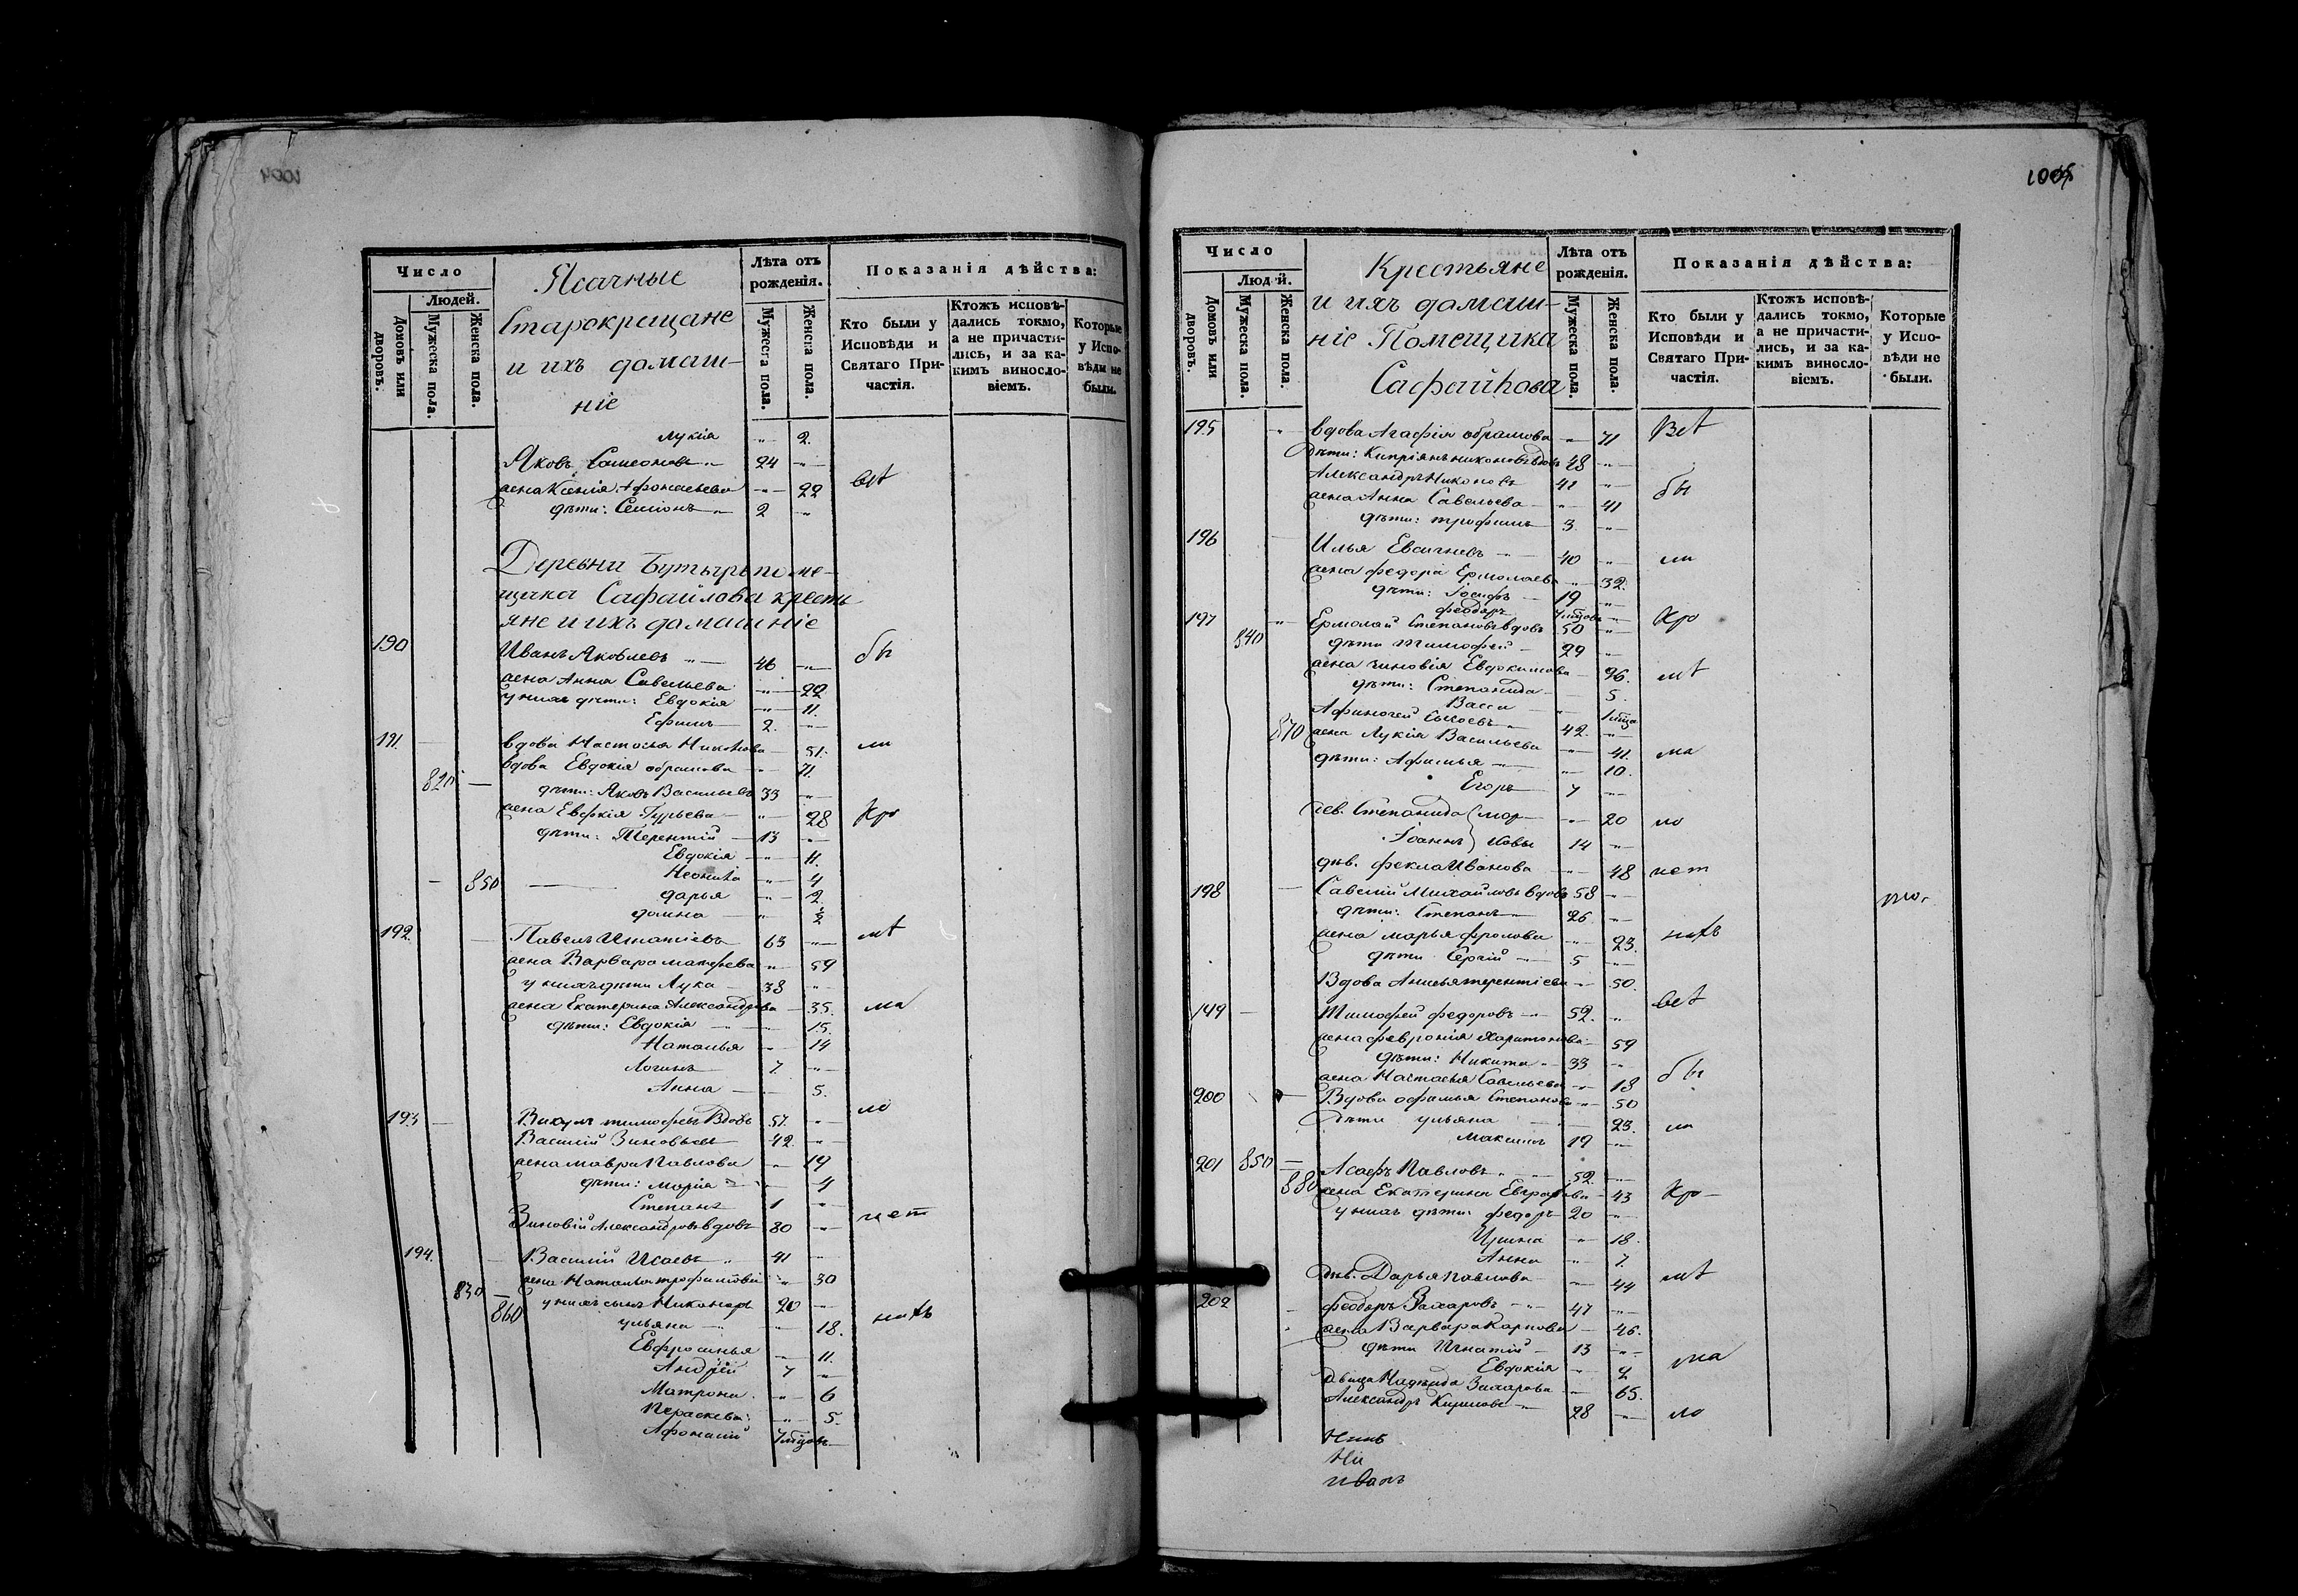 1004
Число
Людей.
Домовъ или дворовъ.
Мужеска пола.
Женска пола.
Ясачные
Старокрещане
и ихъ домаш-
ніе
Лѣта отъ рожденія.
Мужеска пола.
Женска пола.
Показанія дѣйства:
Кто были у Исповѣди и Святаго При-частія.
Ктожъ исповѣ-дались токмо, а не причасти-лись, и за ка-кимъ винословіемъ.
Которые у Испо-вѣди не были.
Лукія 2.
Яковъ Симеоновъ 24
жена Ксенія Афонасьева 22
дѣти: Семіонъ 2
Деревни Бутырь поме-
щика Сафайлова кресть
яне и ихъ домашніе
190 Иванъ Яковлевъ 46 бы
жена Анна Савельева 22
у нихъ дѣти: Евдокія 11.
Ефимъ 2.
191. вдова Настосья Никонова 51. ли
вдова Евдокія обрамова 71.
820 дѣти: Яковъ Васильевъ 33
жена Евфкія Гурьева 28 Кро
дѣти: Терентій 13
Евдокія 11.
850 4
дарья 2
домна ½
192. Павелъ Игнатіевъ 63
жена Варвара матфеева 59
у нихъ дѣти Лука 38
жена Екатерина Александрова 35. ма
дѣти: Евдокія 15.
Наталья 14
Логинъ 7.
Анна 5.
193 Викулъ тимофеевъ Вдовъ 51. ло
Василій Зиновьевъ 42.
жена мавра Павлова 19
дѣти: марія 4
Степанъ 1
Зиновій Александровъ вдовъ 80 нет
194. Василій Исаевъ 41
830 жена Наталья трофимова 30
860 у нихъ сынъ Никаноръ 20
ульяна 18.
Евфросинья 11.
Андрей 7
Матрона 6
Параскева 5.
Афонасий 7 мцовъ
1005
Число
Людей.
Домовъ или дворовъ.
Мужеска пола.
Женска пола.
Крестьяне
и ихъ домаш-
ніе Помещика
Сафайлова
Лѣта отъ рожденія.
Мужеска пола.
Женска пола.
Показанія дѣйства:
Кто были у Исповѣди и Святаго При-частія.
Ктожъ исповѣ-дались токмо, а не причасти-лись, и за ка-кимъ винословіемъ.
Которые у Испо-вѣди не были.
195 вдова Агафія обрамова 71
Дѣти: Кипріянъ никоновъ вдовъ 48
Александръ Никоновъ 41
жена Анна Савельева 41 бы
дѣти: трофимъ 3.
196 Илья Евсигнеевъ 40 ли
жена федора Ермолаева 32.
дѣти: Іосифъ 19
феодоръ
197 Ермолай Степановъ вдовъ 50 Кро
840 дѣти Тимофей 29
жена зиновія Евдокимова 26.
дѣти: Степанида 5.
Васса 1 мца
870 Афиногей 42.
жена Лукія Васильева 41. ма
дѣти: Афимья 10.
Егоръ 7
дев. Степанида 20 ло
Іоаннъ 14
дѣв. фекла Иванова 48 нет
198 Савелій Михайловъ вдовъ 58
дѣти: Степанъ 26
жена марья фролова 23.
дѣти Сергій 5
Вдова Анисья терентіева 50.
149 Тимофей федоровъ 52.
жена февронія Харитонова 59
дѣти: Никита 33
жена Настасья Савельева 18 бы
200 Вдова офимья Степанова 50
Дѣти ульяна 23. ли
Максимъ 19
201 850 Асафъ Павловъ 52.
880 жена Екатерина Евграфова 43 Кро
у нихъ дѣти: федоръ 20
Ирина 18.
Анна 7.
дѣв. Дарья павлова 44
202 феодоръ Захаровъ 47
жена Варвара Карпова 46.
дѣти Игнатій 13
Евдокія 2 ма
дѣвица Надежда Захарова 65.
Александръ Кириловъ 28 ло
иванъ